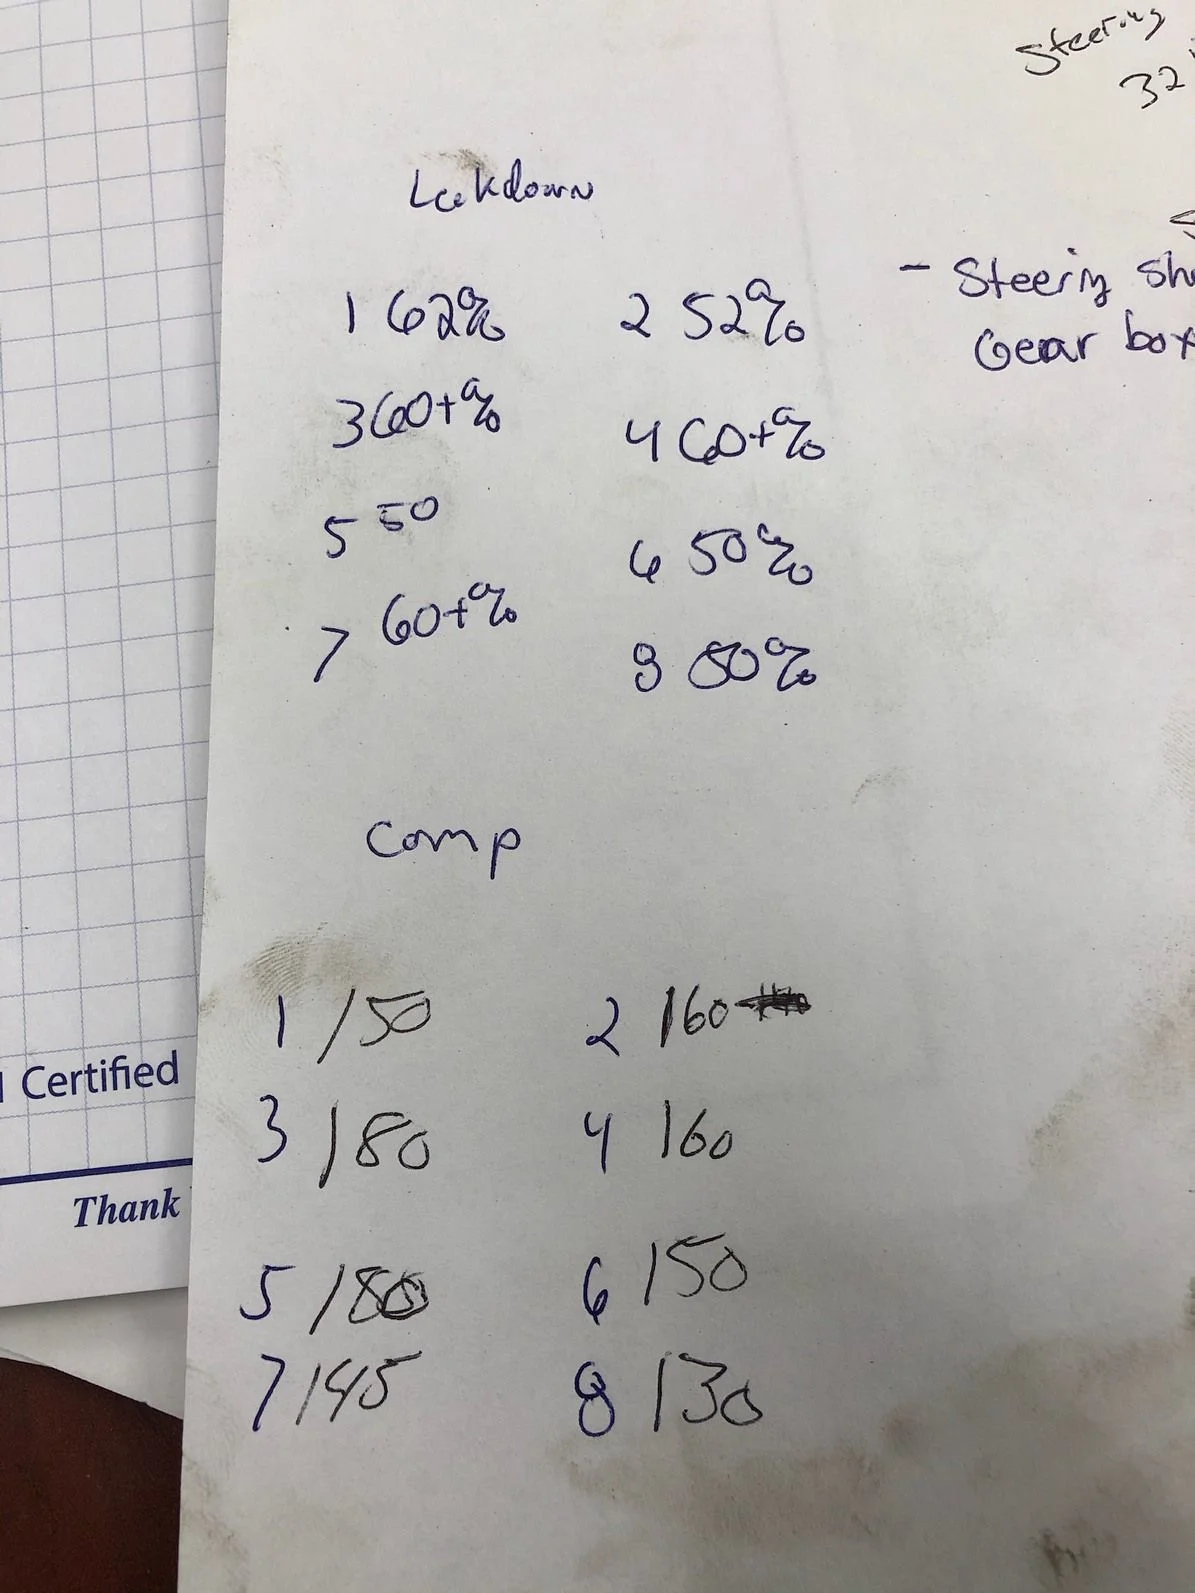 Steering
32
Leakdown
1 62% 2 52%
- Steering Sh
Gear box
3 60+% 4 60+%
5 50 6 50%
7 60+% 8 80%
Comp
1 150 2 160
3 180 4 160
5 180 6 150
7 145 8 130
Certified
Thank